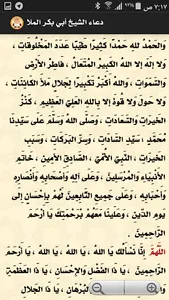 ٧:١٧ ص
دعاء الشيخ أبي بكر الملا
وَالحَمْدُ لِلَّهِ حَمْدًا كَثِيرًا طَيِّبًا عَدَدَ المَخْلُوقَاتِ ،
وَلَا إِلهَ إِلَّا اللهُ الكَبِيرُ المُتَعَالُ ، فَاطِرُ الأَرْضِ
وَالسَّمَوَاتِ ، وَاللهُ أَكْبَرُ تَكْبِيرًا لِجَلَالِ مَلَأَ الكَائِنَاتِ ،
وَلَا حَوْلَ وَلَا قُوَّةَ إِلَّا بِاللهِ العَلِيِّ العَظِيمِ ، كَنْزُ
الخَيْرَاتِ وَالسَّعَادَاتِ ، وَصَلَّى اللهُ وَسَلَّمَ عَلَى سَيِّدِنَا
مُحَمَّدٍ ، سَيِّدِ السَّادَاتِ ، وَسِرِّ البَرَكَاتِ ، وَسَبَبِ
الخَيْرَاتِ ، النَّبِيِّ الأُمِّيِّ ، الصَّادِقِ الأَمِينِ ، خَاتَمِ
الأَنْبِيَاءِ وَالمُرْسَلِينَ ، وَعَلَى آلِهِ وَأَصْحَابِهِ وَأَنْصَارِهِ
أَجْمَعِينَ ، وَعَلَى جَمِيعِ التَّابِعِينَ لَهُمْ بِإِحْسَانٍ إِلَى
يَوْمِ الدِّينِ ، وَعَلَيْنَا مَعَهُمْ بِرَحْمَتِكَ يَا أَرْحَمَ
الرَّاحِمِينَ .
اللَّهُمَّ إِنَّا نَسْأَلُكَ يَا اللهُ ، يَا اللهُ ، يَا اللهُ ، يَا أَرْحَمَ
الرَّاحِمِينَ ، يَا ذَا الفَضْلِ وَالإِحْسَانِ ، يَا ذَا العَظَمَةِ
يَا ذَا الجَلَالِ